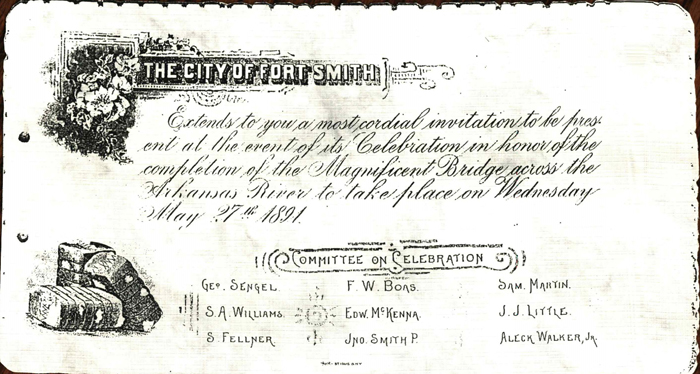 THE CITY OF FORT SMITH
Extends to you a most cordial invitation to be pres-
ent at the event of its Celebration in honor of the
completion of the Magnificent Bridge across the
Arkansas River to take place on Wednesday
May 27th 1891.
COMMITTEE ON CELEBRATION
GEO. SENGEL.
F. W. BOAS.
SAM. MARTIN.
S. A. WILLIAMS.
EDW. McKENNA.
J. J. LITTLE.
S. FELLNER.
JNO. SMITH P.
ALECK WALKER, JR.